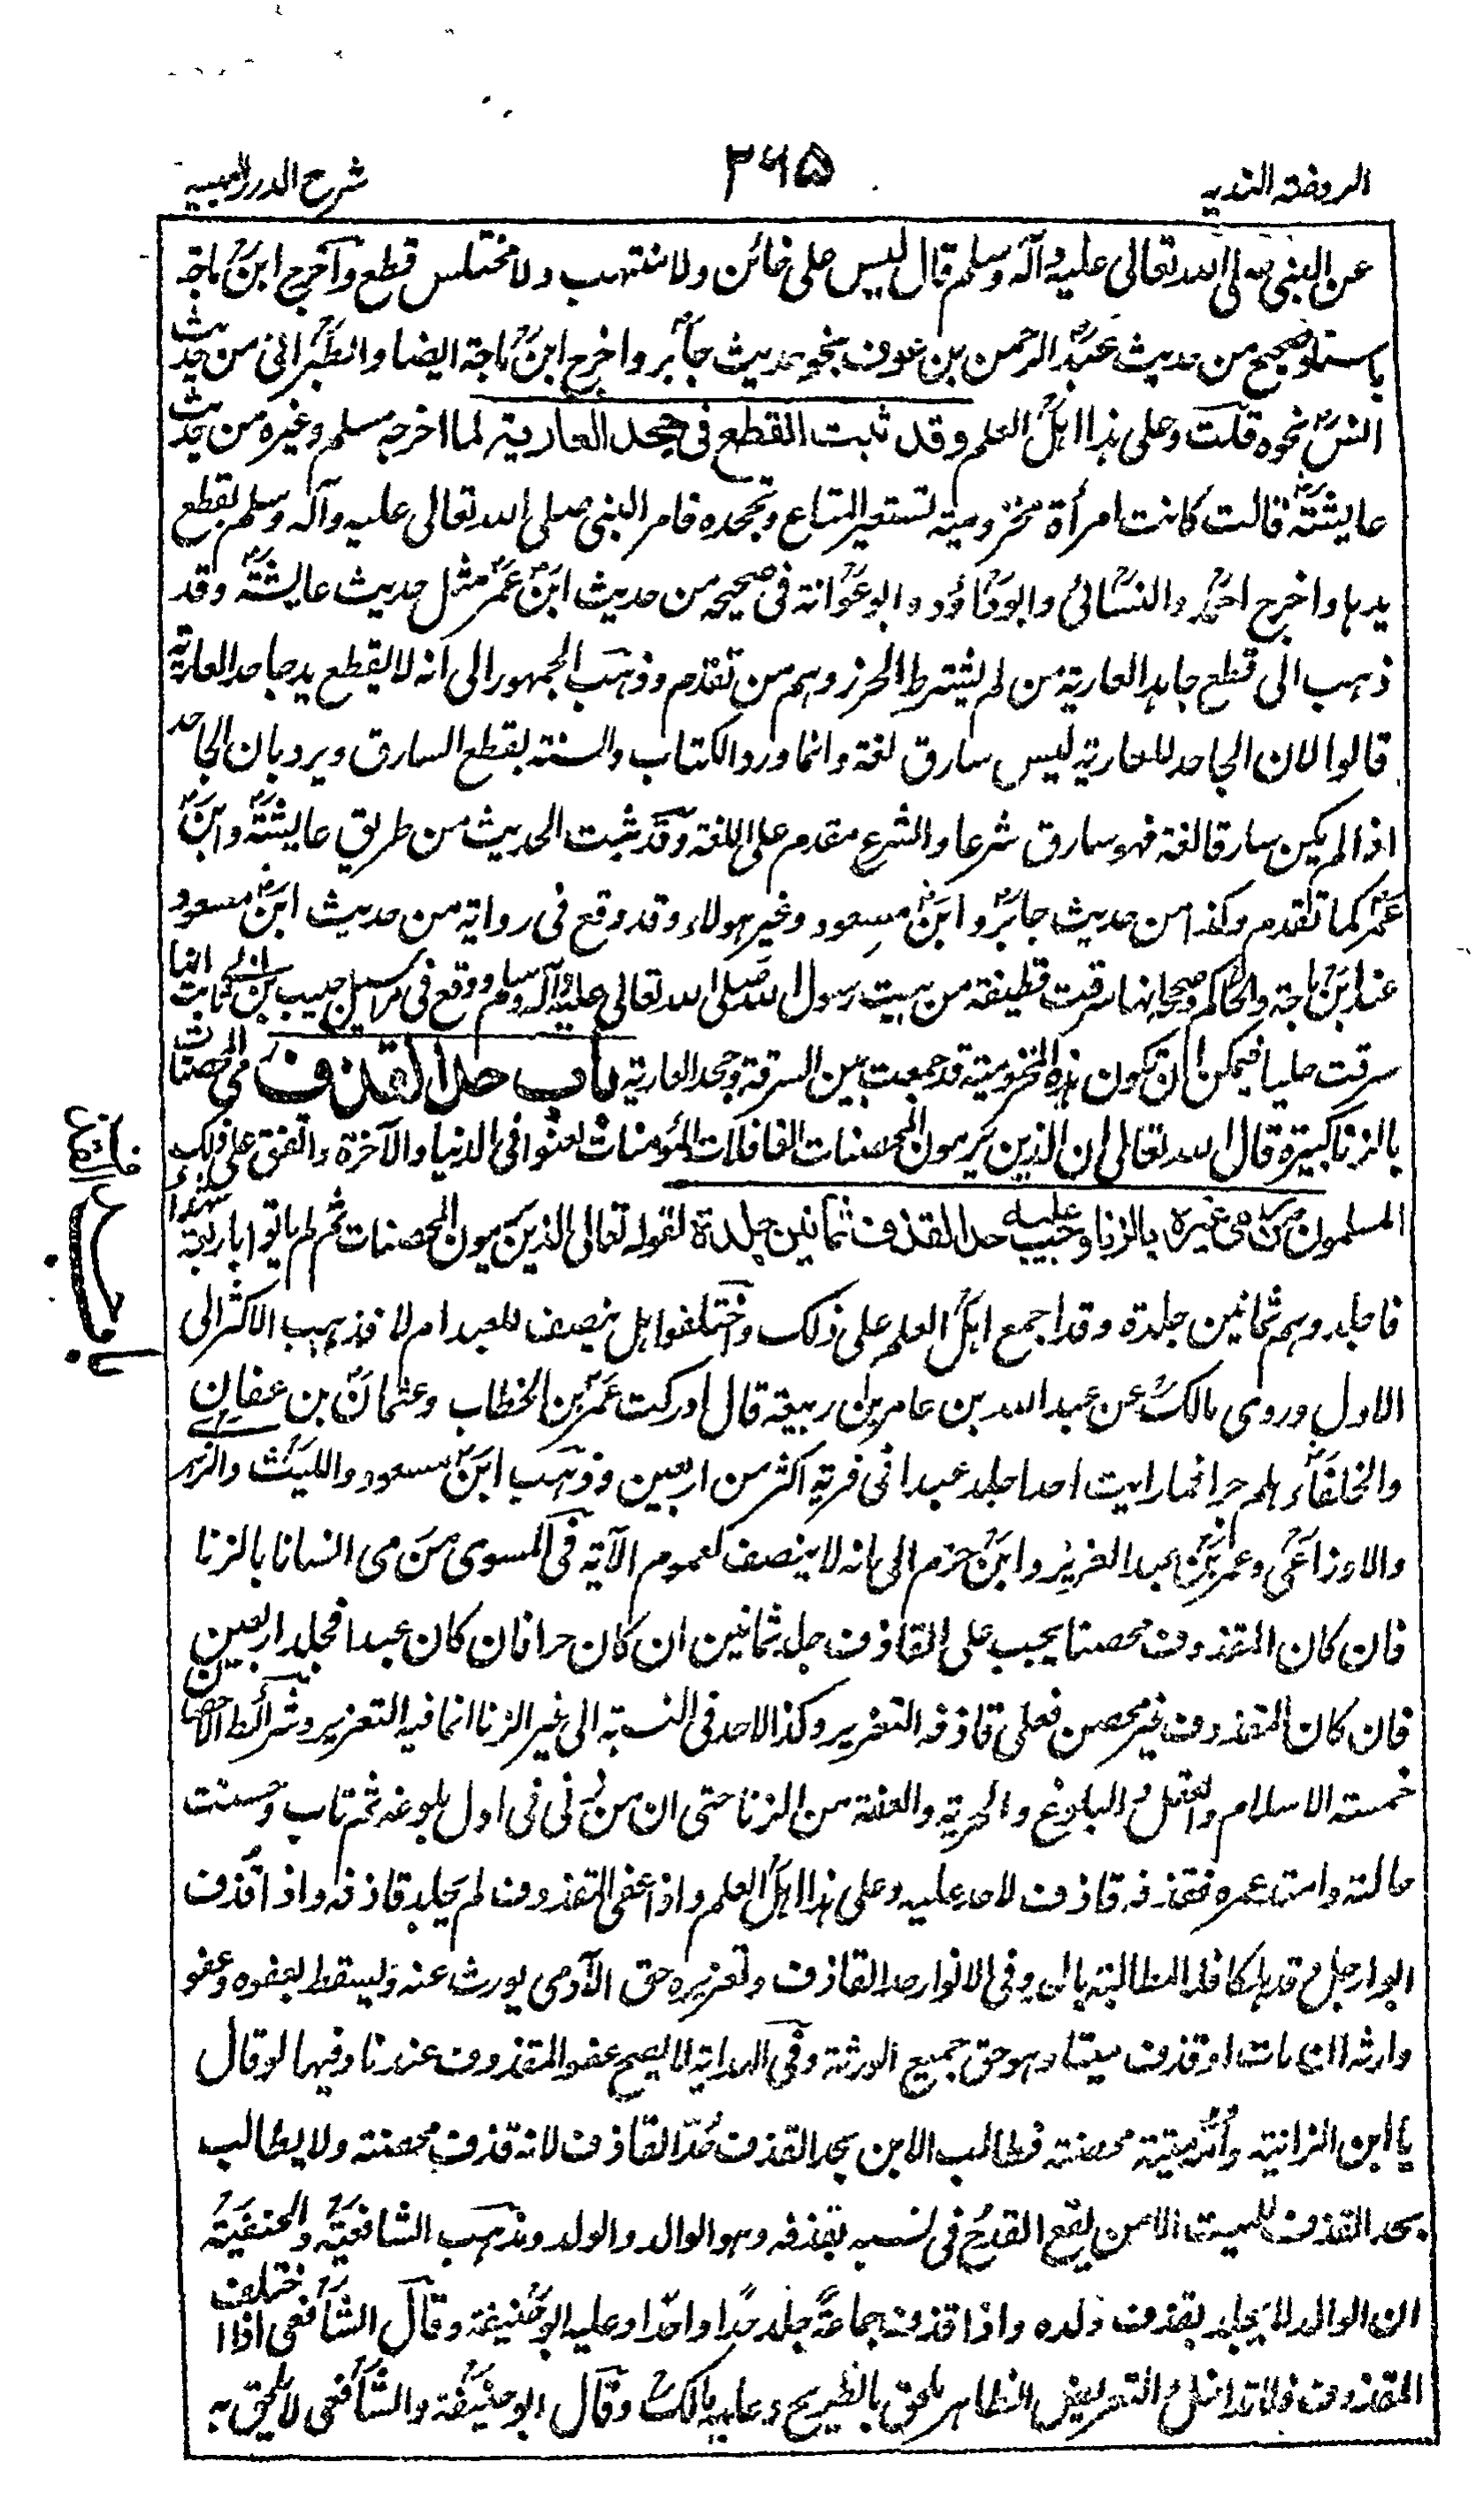 الروضة الندية
٣٦٥
شرح الدرر البهية
عن النبي صلى الله تعالى عليه وآله وسلم قال ليس على خائن ولا منتهب ولا مختلس قطع وأخرج ابن ماجة
باسناد صحيح من حديث عبد الرحمن بن عوف بنحو حديث جابر واخرج ابن ماجة ايضا والطبراني من حديث
انس نحوه قلت وعلى هذا اهل العلم وقد ثبت القطع في جحد العارية لما اخرجه مسلم وغيره من حديث
عايشة قالت كانت امرأة مخزومية تستعير المتاع وتجحده فامر النبي صلى الله تعالى عليه وآله وسلم بقطع
يدها واخرج احمد والنسائي وابو داؤد وابو عوانة في صحيحه من حديث ابن عمر مثل حديث عايشة وقد
ذهب الى قطع جاحد العارية من لم يشترط الحرز وهم من تقدم وذهب الجمهور الى انه لا يقطع يد جاحد العارية
قالوا لان الجاحد للعارية ليس سارق لغة وانما ورد الكتاب والسنة بقطع السارق ويرد بان الجاحد
اذا لم يكن سارقا لغة فهو سارق شرعا والشرع مقدم على اللغة وقد ثبت الحديث من طريق عايشة وابن
عمر كما تقدم وكذا من حديث جابر وابن مسعود وغير هولاء وقد وقع في رواية من حديث ابن مسعود
عند ابن ماجة والحاكم وصححه انها سرقت قطيفة من بيت رسول الله صلى الله تعالى عليه وآله وسلم ووقع في مراسيل حبيب بن ابي ثابت انها
سرقت حليا فيمكن ان تكون هذه المخزومية قد جمعت بين السرقة وجحد العارية باب حد القذف رمي المحصنات
بالزنا كبيرة قال الله تعالى ان الذين يرمون المحصنات الغافلات المؤمنات لعنوا في الدنيا والآخرة واتفق على ذلك
المسلمون من رمى غيره بالزنا وجب عليه حد القذف ثمانين جلدة لقوله تعالى والذين يرمون المحصنات ثم لم ياتوا باربعة شهداء
فاجلدوهم ثمانين جلدة وقد اجمع اهل العلم على ذلك واختلفوا هل ينصف للعبد ام لا فذهب الاكثر الى
الاول وروى مالك عن عبد الله بن عامر بن ربيعة قال ادركت عمر بن الخطاب وعثمان بن عفان
والخلفاء هلم جرا فما رايت احدا جلد عبدا في فرية اكثر من اربعين وذهب ابن مسعود والليث والزهري
والاوزاعي وعمر بن عبد العزيز وابن حزم الى انه لا ينصف لعموم الآية في المسوى من رمى انسانا بالزنا
فان كان المقذوف محصنا يجب على القاذف جلد ثمانين ان كان حرا فان كان عبدا فجلد اربعين
فان كان المقذوف غير محصن فعلى قاذفه التعزير وكذا لاحد في النسبة الى غير الزنا انما فيه التعزير وشرائط الاحصان
خمسة الاسلام والعقل والبلوغ والحرية والعفة من الزنا حتى ان من زنى في اول بلوغه ثم تاب وحسنت
حالته وامتد عمره فقذفه قاذف لاحد عليه وعلى هذا اهل العلم واذا عفى المقذوف لم يجلد قاذفه واذا قذف
ابوا رجل وقد هلكا فله المطالبة بالحد وفي الانوار حد القاذف وتعزيره حق الآدمي يورث عنه ويسقط بعفوه وعفو
وارثه ان مات او قذف ميتا وهو حق جميع الورثة وفي الهداية لا يصح عفو المقذوف عندنا وفيها لو قال
يا ابن الزانية وامه ميتة محصنة فطالب الابن بحد القذف حد القاذف لانه قذف محصنة ولا يطالب
بحد القذف للميت الا من يقع القدح في نسبه بقذفه وهو الوالد والولد ومذهب الشافعية والحنفية
ان الوالد لا يجلد بقذف ولده واذا قذف جماعة جلد حدا واحدا وعليه ابو حنيفة وقال الشافعي اذا اختلف
المقذوف فلا تداخل والتعريض الظاهر يلحق بالصريح وعليه مالك وقال ابو حنيفة والشافعي لا يلحق به